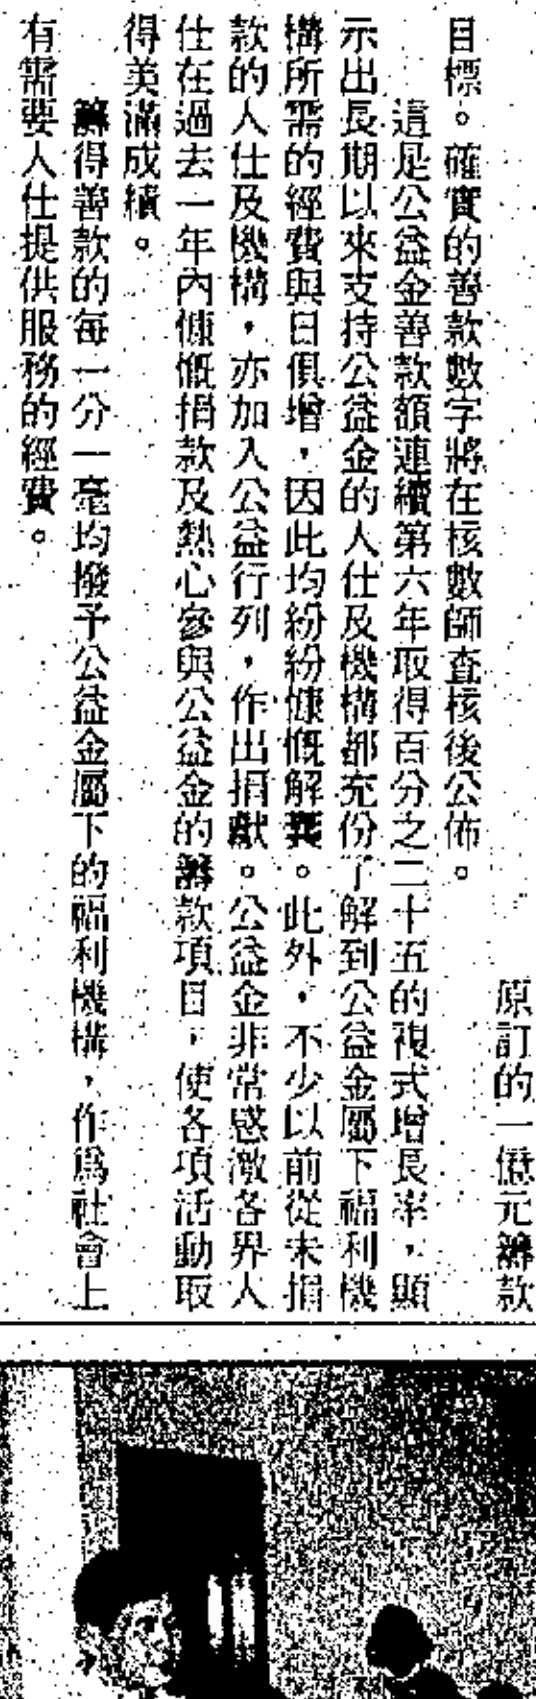 原訂的一億元籌款
目標。確實的善款數字將在核數師查核後公佈。
這是公益金善款額連續第六年取得百分之二十五的複式增長率，顯
示出長期以來支持公益金的人仕及機構都充份了解到公益金屬下福利機
構所需的經費與日俱增，因此均紛紛慷慨解囊。此外，不少以前從未捐
款的人仕及機構，亦加入公益行列，作出捐獻。公益金非常感激各界人
仕在過去一年內慷慨捐款及熱心參與公益金的籌款項目，使各項活動取
得美滿成績。
籌得善款的每一分一毫均撥予公益金屬下的福利機構，作爲社會上
有需要人仕提供服務的經費。